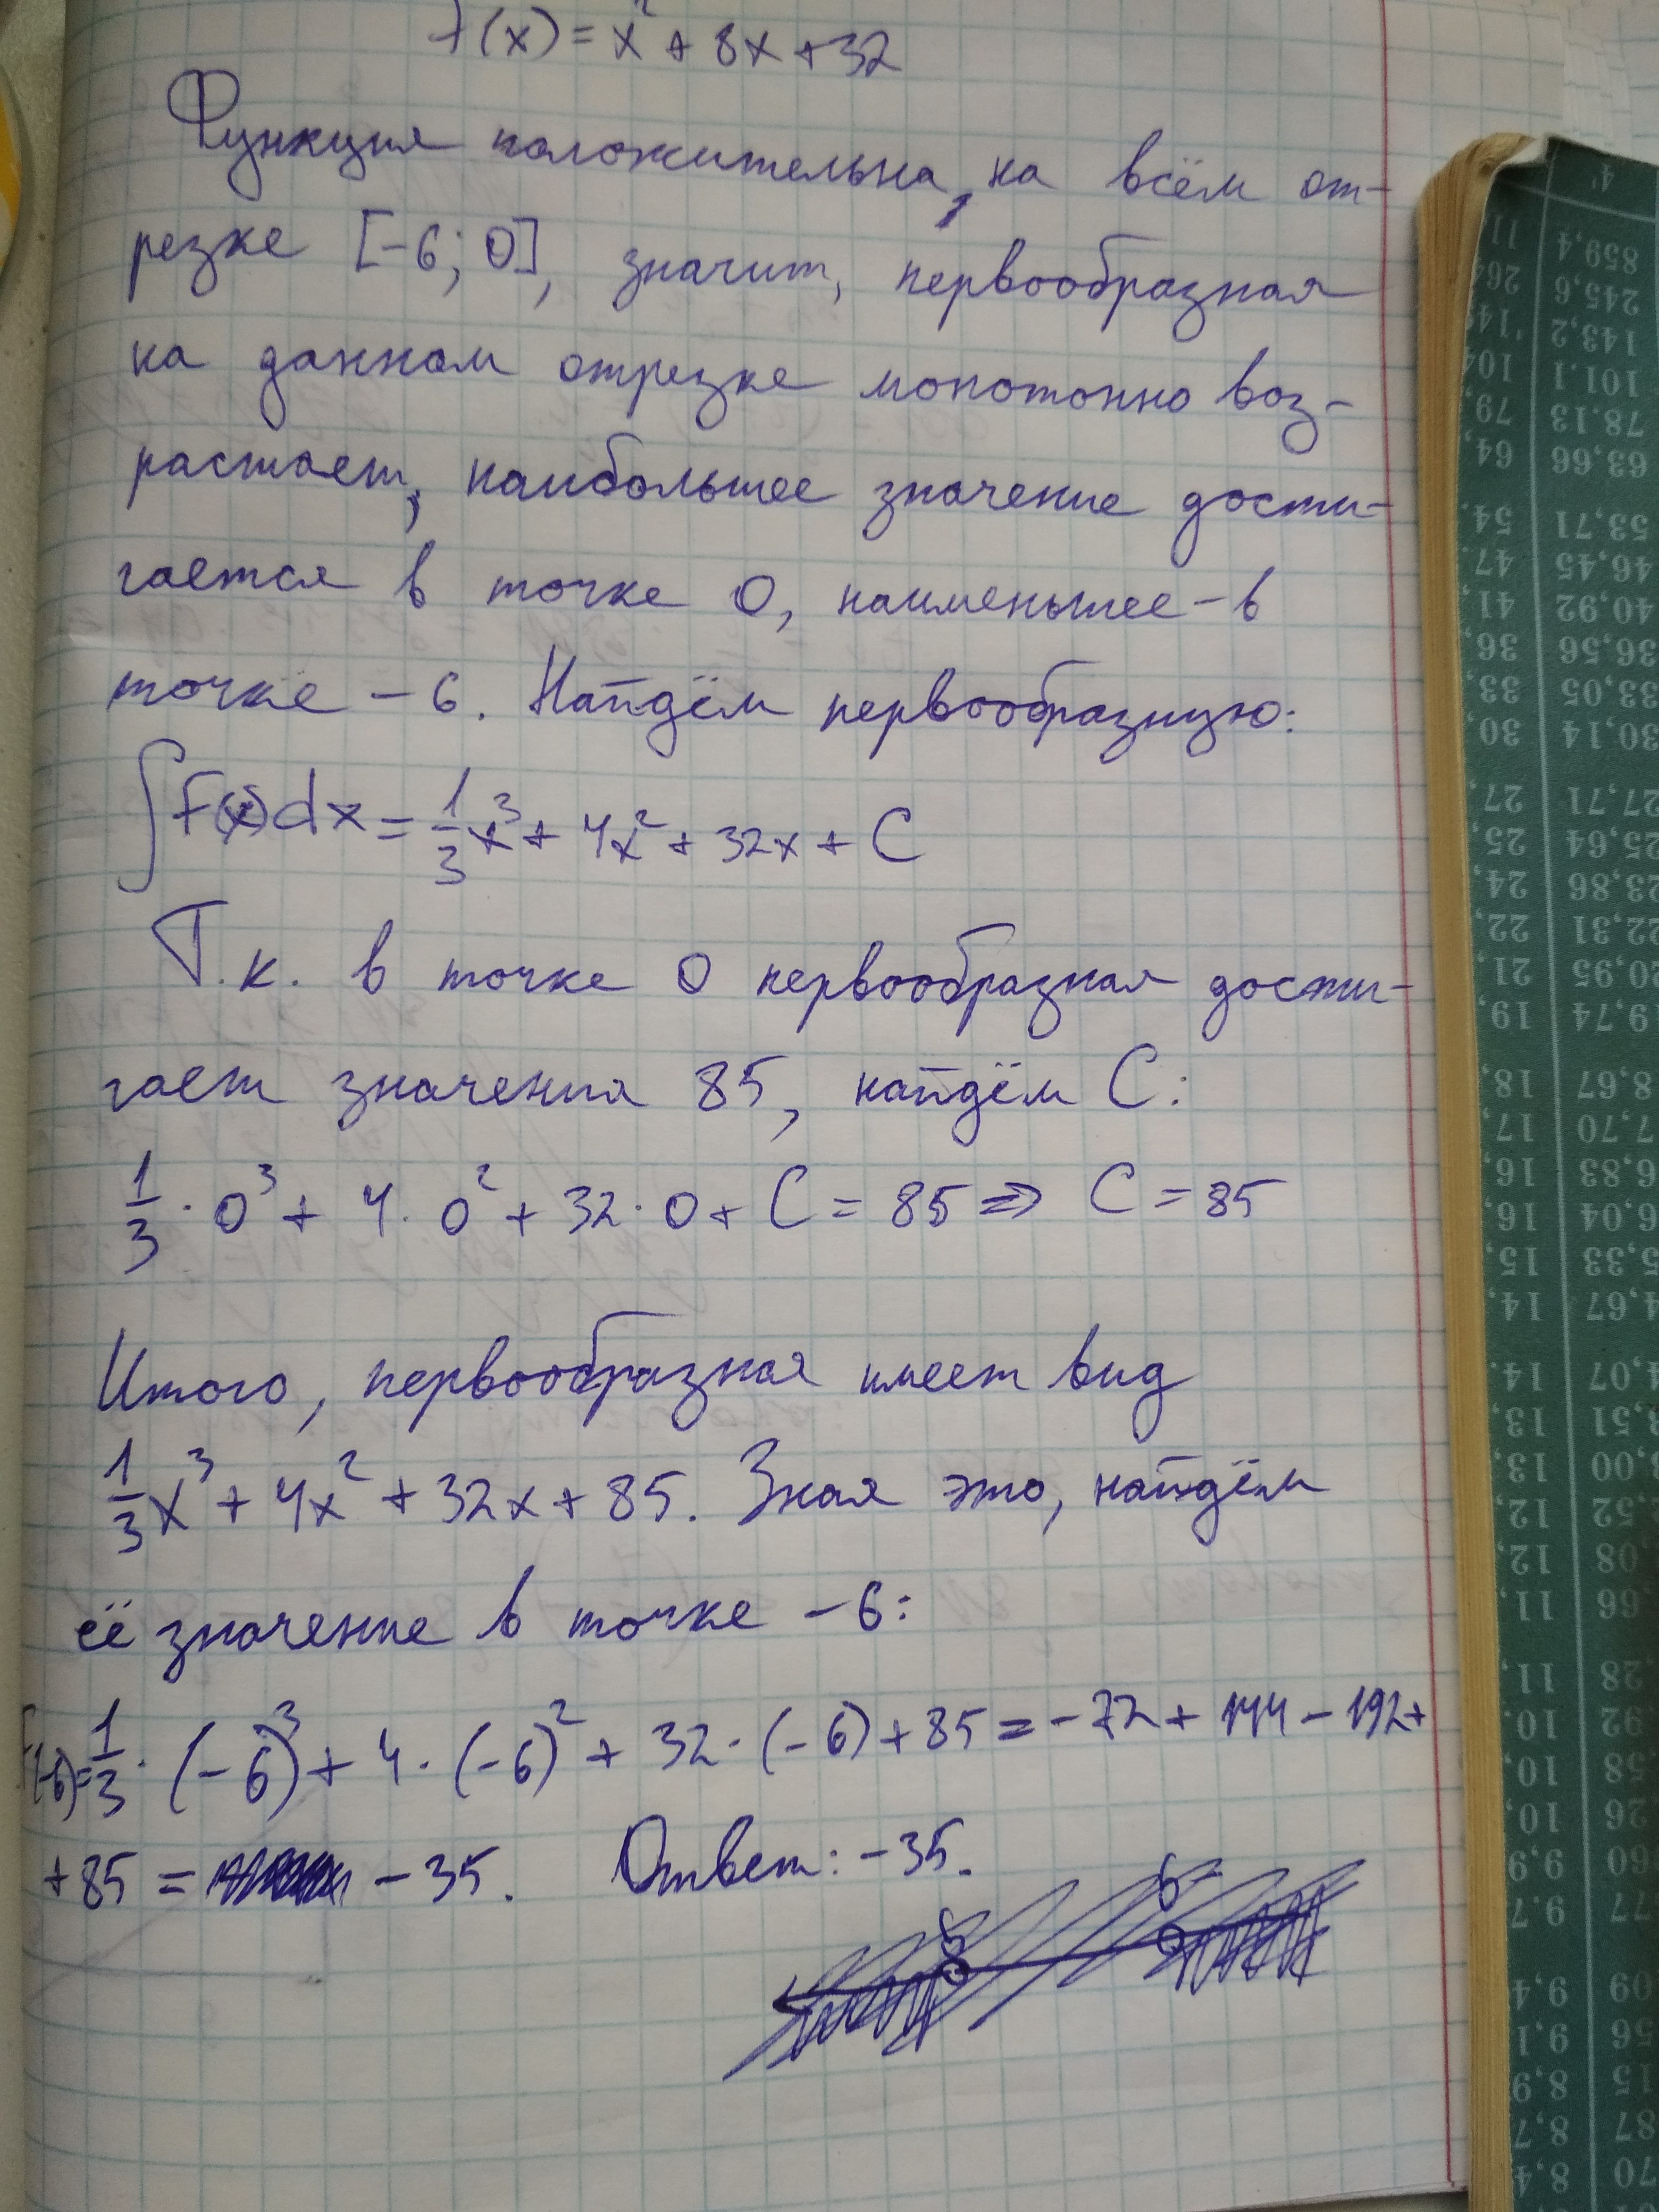 f(x) = x² + 8x + 32
Функция положительна, на всём от-
резке [-6; 0], значит, первообразная
на данном отрезке монотонно воз-
растает, наибольшее значение дости-
гается в точке 0, наименьшее - в
точке - 6. Найдём первообразную:
∫f(x)dx = 1/3 x³ + 4x² + 32x + C
Т.к. в точке 0 первообразная дости-
гает значения 85, найдём C:
1/3 · 0³ + 4 · 0² + 32 · 0 + C = 85 => C = 85
Итого, первообразная имеет вид
1/3 x³ + 4x² + 32x + 85. Зная это, найдём
её значение в точке - 6:
F(-6) = 1/3 · (-6)³ + 4 · (-6)² + 32 · (-6) + 85 = -72 + 144 - 192 +
+ 85 = - 35. Ответ: - 35.
859,4
245,6
143,2
101.1
78.13 79
63,66 64,
53,71 54.
46,45 47.
40,92 41,
36,56 36,
33,05 33,
30,14 30,
27,71 27,
25,64 25,
23,86 24,
22,31 22,
20,95 21,
9,74 19,
8,67 18,
7,70 17,
6,83 16,
6,04 16,
5,33 15,
4,67 14,
4,07 14.
3,51 13,
3,00 13,
52 12,
08 12,
66 11,
28 11,
92 10.
58 10,
26 10,
60 9,9
77 9.7
09 9,4
56 9,1
15 8,9
87 8,7
70 8,4